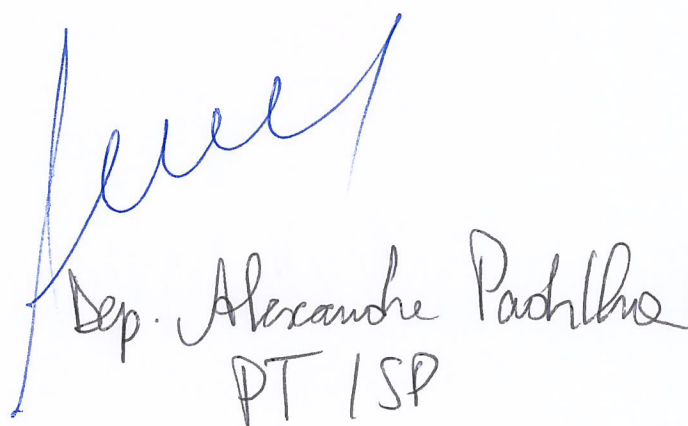 Dep. Alexandre Padilha
PT / SP